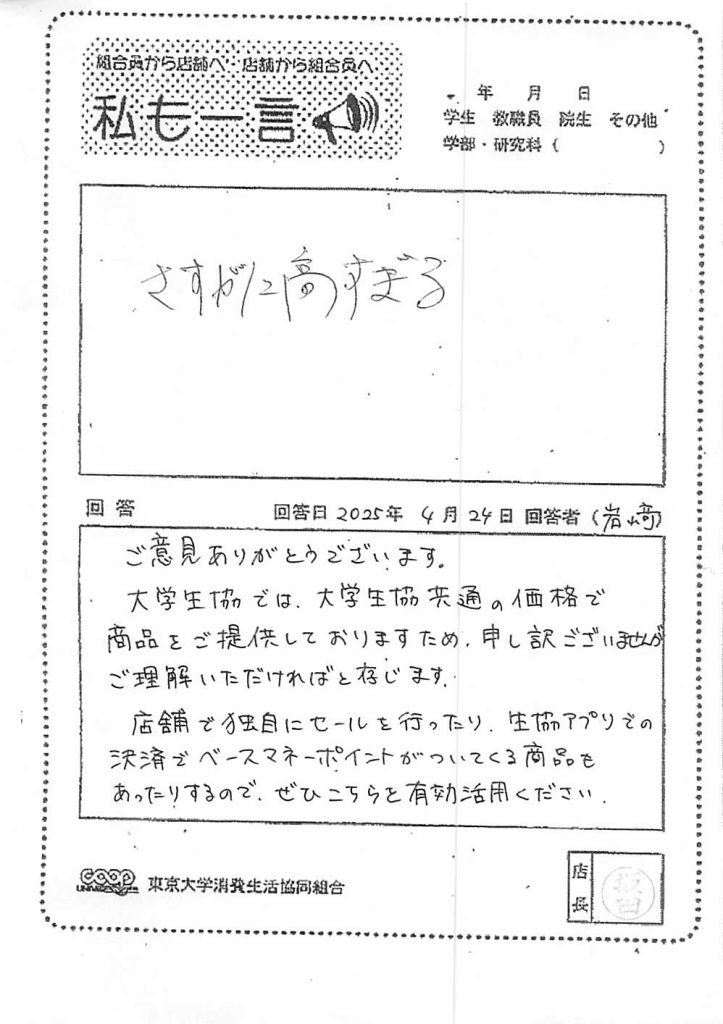 組合員から店舗へ・店舗から組合員へ
私も一言
年 月 日
学生 教職員 院生 その他
学部・研究科( )
さすがに高すぎる
回答 回答日 2025年 4月 24日 回答者 (岩崎)
ご意見ありがとうございます。
大学生協では、大学生協共通の価格で
商品をご提供しておりますため、申し訳ございませんが
ご理解いただければと存じます。
店舗で独自にセールを行ったり、生協アプリでの
決済でベースマネーポイントがついてくる商品も
あったりするので、ぜひこちらを有効活用ください。
coop 東京大学消費生活協同組合
店長